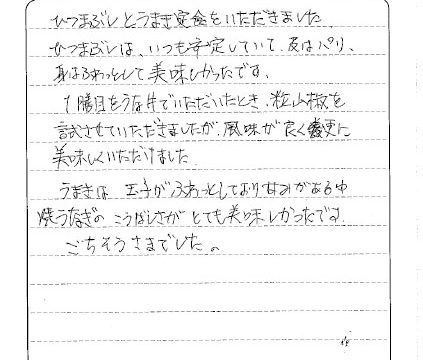 ひつまぶしとうまき定食をいただきました
ひつまぶしは、いつも安定していて、皮はパリ、
身はふわっとして美味しかったです。
1膳目をうな丼でいただいたとき、粒山椒を
試させていただきましたが、風味が良く更に
美味しくいただけました
うまきは 玉子がふわっとしており甘みがある中
焼うなぎの こうばしさが とても美味しかったです.
ごちそうさまでした。